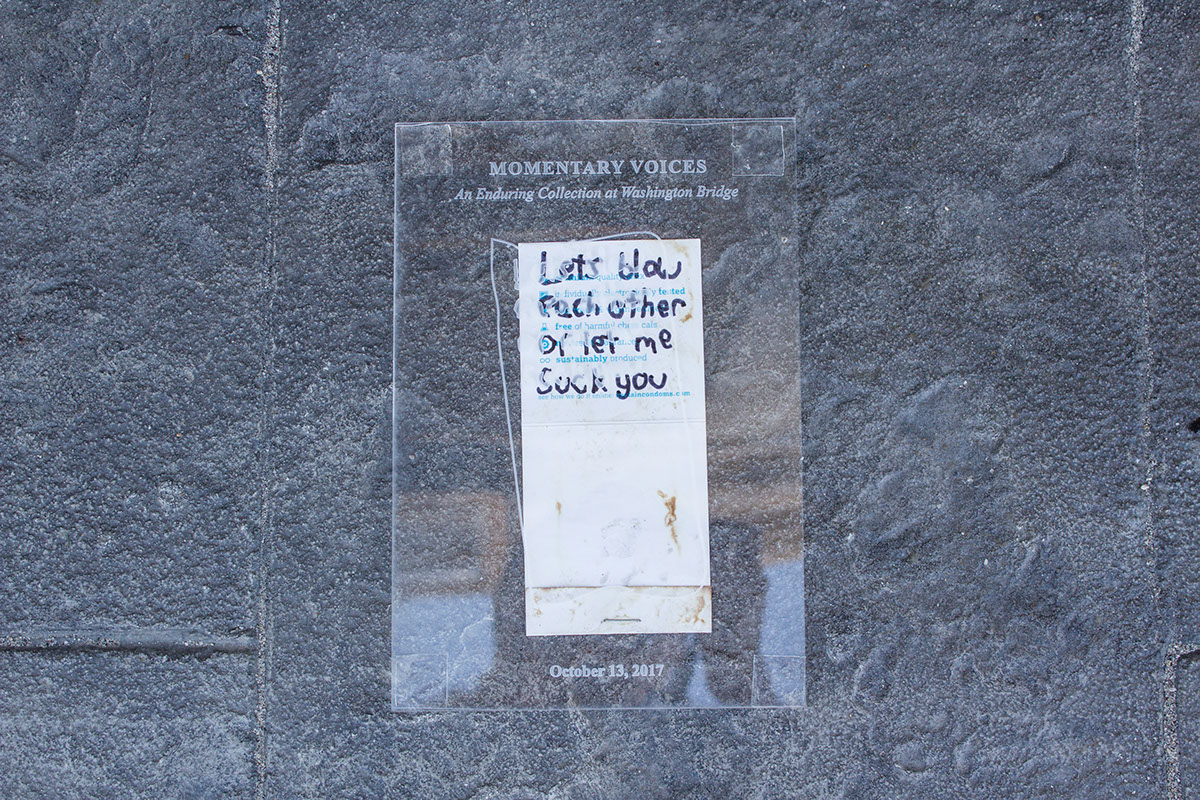 MOMENTARY VOICES
An Enduring Collection at Washington Bridge
Lets blow
Each other
Or let me
Suck you
individually electronically tested
free of harmful chemicals
sustainably produced
see how we do it online
October 13, 2017